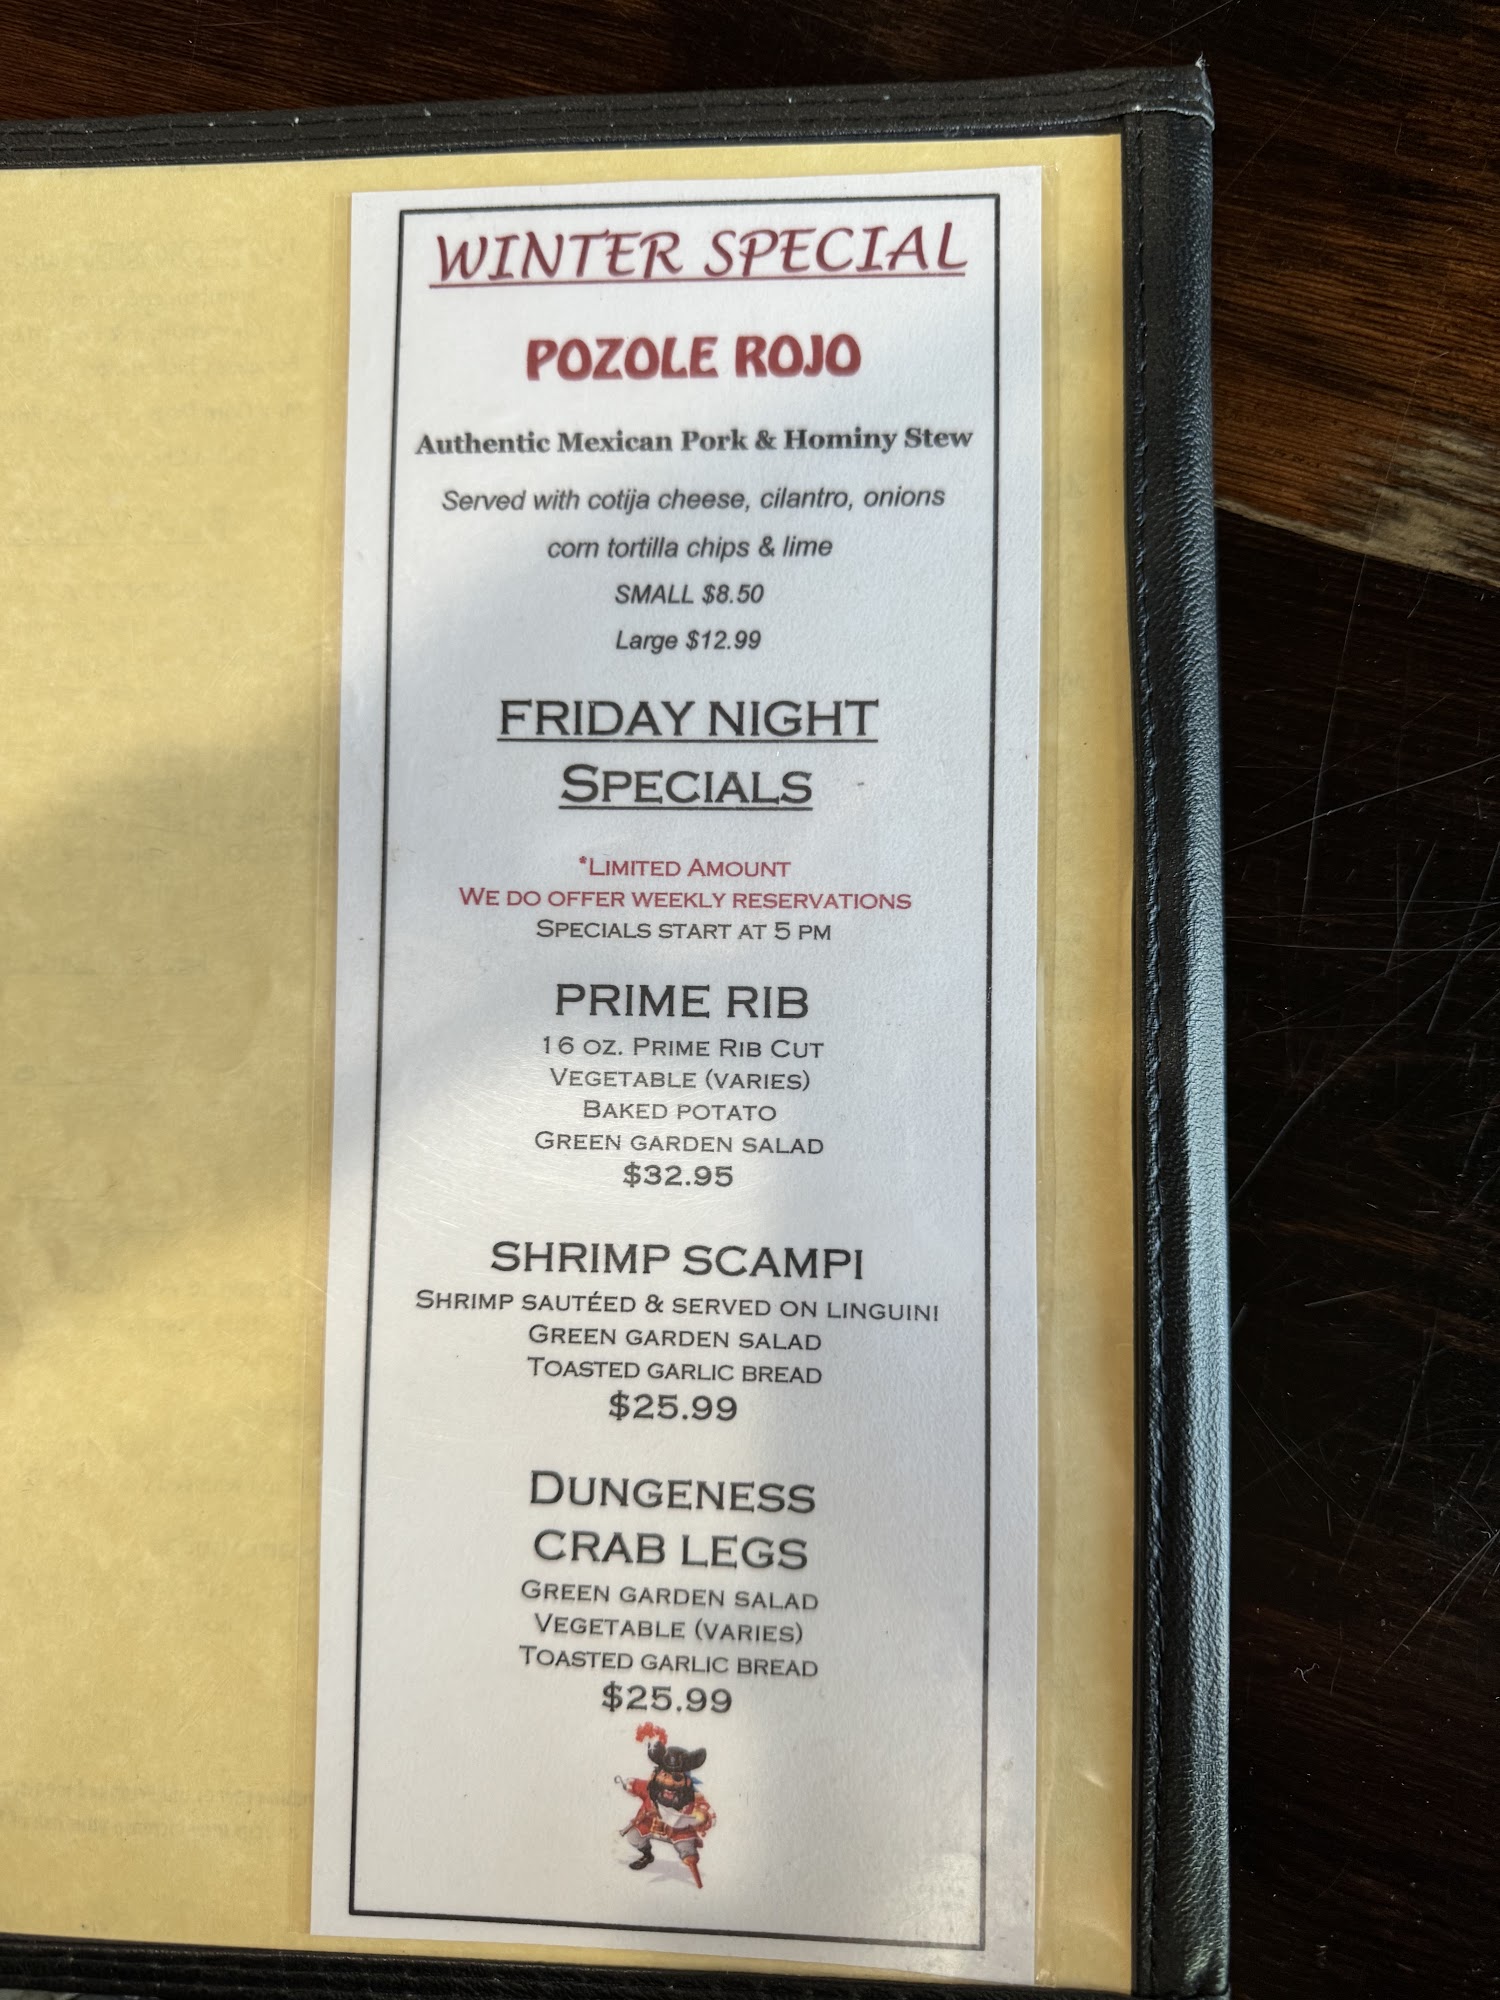 WINTER SPECIAL
POZOLE ROJO
Authentic Mexican Pork & Hominy Stew
Served with cotija cheese, cilantro, onions
corn tortilla chips & lime
SMALL $8.50
Large $12.99
FRIDAY NIGHT
SPECIALS
*LIMITED AMOUNT
WE DO OFFER WEEKLY RESERVATIONS
SPECIALS START AT 5 PM
PRIME RIB
16 OZ. PRIME RIB CUT
VEGETABLE (VARIES)
BAKED POTATO
GREEN GARDEN SALAD
$32.95
SHRIMP SCAMPI
SHRIMP SAUTÉED & SERVED ON LINGUINI
GREEN GARDEN SALAD
TOASTED GARLIC BREAD
$25.99
DUNGENESS
CRAB LEGS
GREEN GARDEN SALAD
VEGETABLE (VARIES)
TOASTED GARLIC BREAD
$25.99